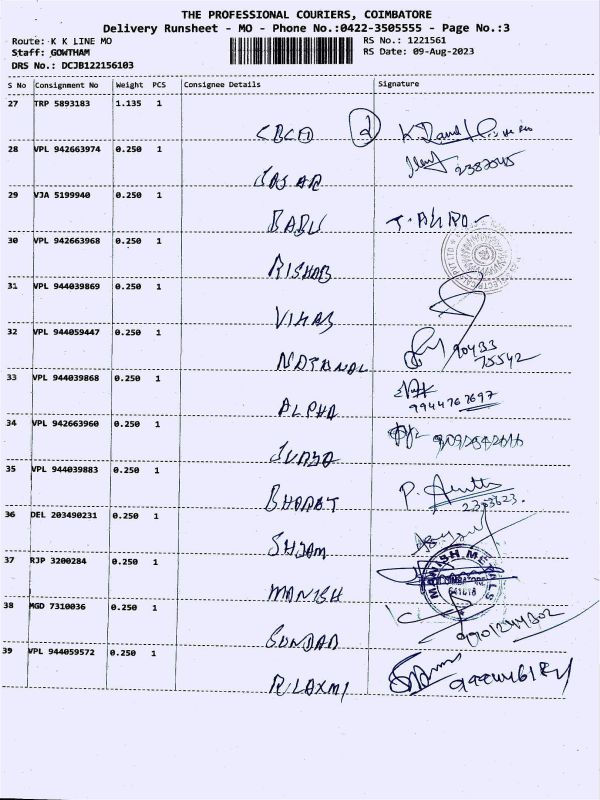 THE PROFESSIONAL COURIERS, COIMBATORE
Delivery Runsheet - MO - Phone No.:0422-3505555 - Page No.:3
Route: K K LINE MO
RS No.: 1221561
Staff: GOWTHAM
RS Date: 09-Aug-2023
DRS No.: DCJB122156103
S No Consignment No Weight PCS Consignee Details Signature
27 TRP 5893183 1.135 1
28 VPL 942663974 0.250 1
2382045
SAGAR
29 VJA 5199940 0.250 1
BABU
30 VPL 942663968 0.250 1
RISHAB
31 VPL 944039869 0.250 1
VIKAS
32 VPL 944059447 0.250 1
90433
75542
NATIONAL
33 VPL 944039868 0.250 1
9944767697
ALPHA
34 VPL 942663960 0.250 1
SURYA
35 VPL 944039883 0.250 1
P.
BHARAT
36 DEL 203490231 0.250 1
SHYAM
37 RJP 3200284 0.250 1
MANISH METALS
COIMBATORE
641018
MANISH
38 MGD 7310036 0.250 1
SUNDAR
39 VPL 944059572 0.250 1
R LAXMI